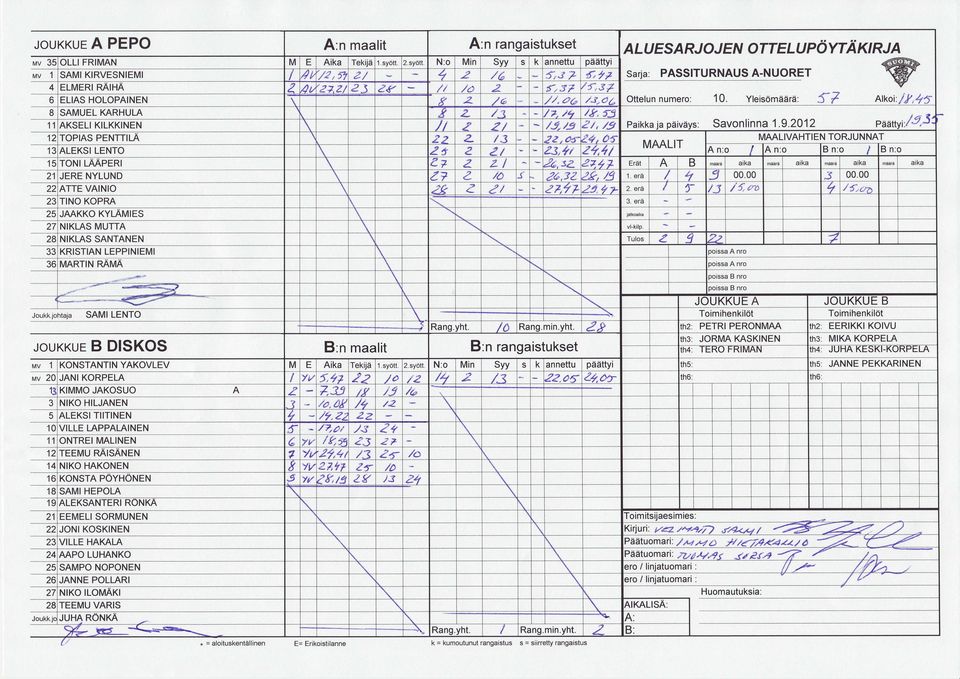 JOUKKUE A PEPO
A:n maalit
A:n rangaistukset
MV 35 OLLI FRIMAN
MV 1 SAMI KIRVESNIEMI
4 ELMERI RÄIHÄ
6 ELIAS HOLOPAINEN
8 SAMUEL KARHULA
11 AKSELI KILKKINEN
12 TOPIAS PENTTILÄ
13 ALEKSI LENTO
15 TONI LÄÄPERI
21 JERE NYLUND
22 ATTE VAINIO
23 TINO KOPRA
25 JAAKKO KYLÄMIES
27 NIKLAS MUTTA
28 NIKLAS SANTANEN
33 KRISTIAN LEPPINIEMI
36 MARTIN RÄMÄ
Joukk.johtaja SAMI LENTO
M E Aika Tekijä 1.syött. 2.syött.
1 AV 12,59 21 - -
2 AV 27,21 23 28 -
N:o Min Syy s k annettu päättyi
4 2 16 - - 5,37 5,47
11 10 2 - - 5,37 15,37
8 2 16 - - 11.06 13,06
8 2 13 - - 17,14 18.59
11 2 21 - - 19,19 21,19
22 2 13 - - 22,05 24,05
25 2 21 - - 23,41 24,41
27 2 21 - - 26,32 27,47
27 2 10 S - 26,32 28,19
28 2 21 - - 27,47 29,47
Rang.yht. 10 Rang.min.yht. 28
JOUKKUE B DISKOS
B:n maalit
B:n rangaistukset
MV 1 KONSTANTIN YAKOVLEV
MV 20 JANI KORPELA
13 KIMMO JAKOSUO A
3 NIKO HILJANEN
5 ALEKSI TIITINEN
10 VILLE LAPPALAINEN
11 ONTREI MALINEN
12 TEEMU RÄISÄNEN
14 NIKO HAKONEN
16 KONSTA PÖYHÖNEN
18 SAMI HEPOLA
19 ALEKSANTERI RÖNKÄ
21 EEMELI SORMUNEN
22 JONI KOSKINEN
23 VILLE HAKALA
24 AAPO LUHANKO
25 SAMPO NOPONEN
26 JANNE POLLARI
27 NIKO ILOMÄKI
28 TEEMU VARIS
Joukk.jo JUHA RÖNKÄ
M E Aika Tekijä 1.syött. 2.syött.
1 YV 5,47 22 10 12
2 - 7,39 18 19 16
3 - 10,08 14 12 -
4 - 14.22 22 - -
5 - 17,01 13 24 -
6 YV 18,59 23 27 -
7 YV 24,41 13 25 10
8 YV 27,47 25 10 -
9 YV 28,19 28 13 24
N:o Min Syy s k annettu päättyi
14 2 13 - - 22.05 24,05
Rang.yht. 1 Rang.min.yht. 2
* = aloituskentällinen E= Erikoistilanne k = kumoutunut rangaistus s = siirretty rangaistus
ALUESARJOJEN OTTELUPÖYTÄKIRJA
SUOMI
Sarja: PASSITURNAUS A-NUORET
Ottelun numero: 10. Yleisömäärä: 57 Alkoi: 18.45
Paikka ja päiväys: Savonlinna 1.9.2012 Päättyi: 19,35
MAALIT
MAALIVAHTIEN TORJUNNAT
A n:o 1 A n:o B n:o 1 B n:o
Erät A B määrä aika määrä aika määrä aika määrä aika
1. erä 1 4 9 00.00 3 00.00
2. erä 1 5 13 15,00 4 15,00
3. erä - -
jatkoaika - -
vl-kilp. - -
Tulos 2 9 22 7
poissa A nro
poissa A nro
poissa B nro
poissa B nro
JOUKKUE A JOUKKUE B
Toimihenkilöt Toimihenkilöt
th2: PETRI PERONMAA th2: EERIKKI KOIVU
th3: JORMA KASKINEN th3: MIKA KORPELA
th4: TERO FRIMAN th4: JUHA KESKI-KORPELA
th5: th5: JANNE PEKKARINEN
th6: th6:
Toimitsijaesimies:
Kirjuri: VELIMATTI SALMI
Päätuomari: IMMO HIETAKALLIO
Päätuomari: TUOMAS SORSA
ero / linjatuomari :
ero / linjatuomari :
Huomautuksia:
AIKALISÄ:
A:
B: